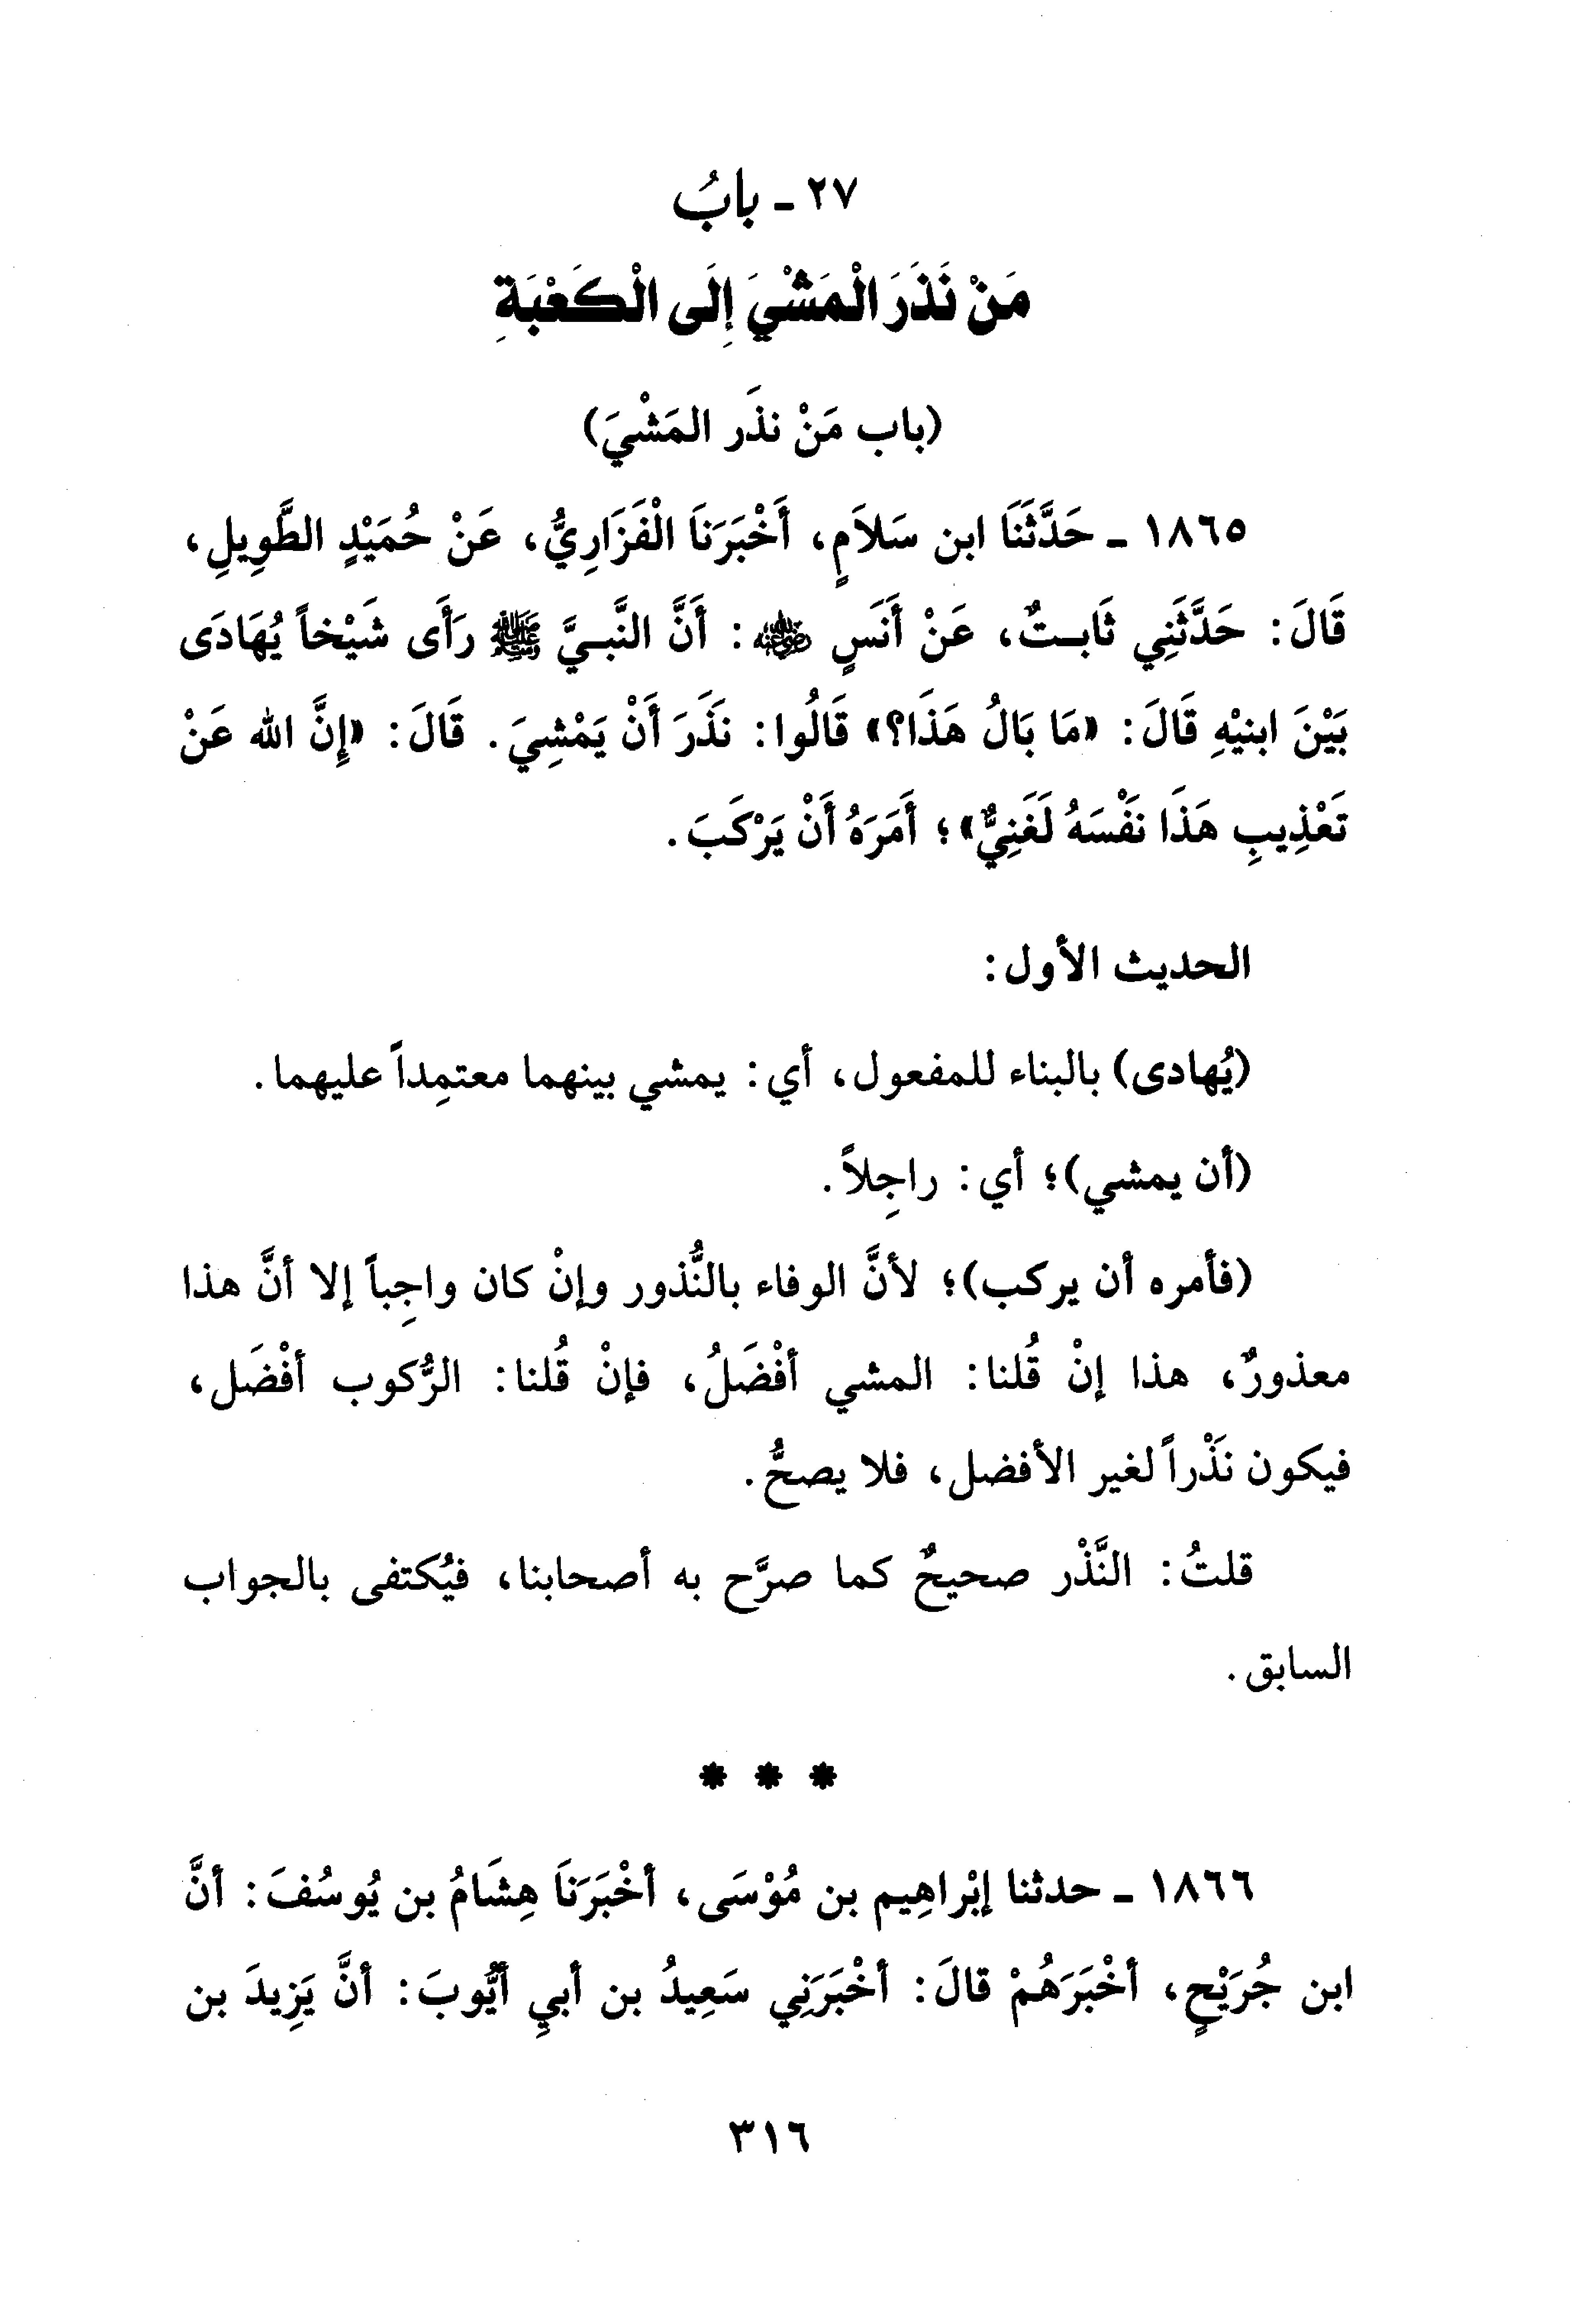 ٢٧ - بابُ
مَنْ نَذَرَ الْمَشْيَ إِلَى الْكَعْبَةِ
(باب مَنْ نذَر المَشْيَ)
١٨٦٥ - حَدَّثَنَا ابن سَلاَمٍ، أَخْبَرَنَا الْفَزَارِيُّ، عَنْ حُمَيْدٍ الطَّوِيلِ،
قَالَ: حَدَّثَنِي ثَابتٌ، عَنْ أَنَسٍ رضي الله عنه: أَنَّ النَّبيَّ ﷺ رَأَى شَيْخاً يُهَادَى
بَيْنَ ابنيْهِ قَالَ: «مَا بَالُ هَذَا؟» قَالُوا: نَذَرَ أَنْ يَمْشِيَ. قَالَ: «إِنَّ الله عَنْ
تَعْذِيبِ هَذَا نَفْسَهُ لَغَنِيٌّ»؛ أَمَرَهُ أَنْ يَرْكَبَ.
الحديث الأول:
(يُهادى) بالبناء للمفعول، أي: يمشي بينهما معتمِداً عليهما.
(أن يمشي)؛ أي: راجِلاً.
(فأمره أن يركب)؛ لأنَّ الوفاء بالنُّذور وإنْ كان واجِباً إلا أنَّ هذا
معذورٌ، هذا إنْ قُلنا: المشي أفْضَلُ، فإنْ قُلنا: الرُّكوب أفْضَل،
فيكون نَذْراً لغير الأفضل، فلا يصحُّ.
قلتُ: النَّذْر صحيحٌ كما صرَّح به أصحابنا، فيُكتفى بالجواب
السابق.
* * *
١٨٦٦ - حدثنا إبْراهِيم بن مُوْسَى، أخْبَرَنَا هِشَامُ بن يُوسُفَ: أنَّ
ابن جُرَيْحٍ، أخْبَرَهُمْ قالَ: أخْبَرَنِي سَعِيدُ بن أبيِ أيُّوبَ: أنَّ يَزِيدَ بن
٣١٦